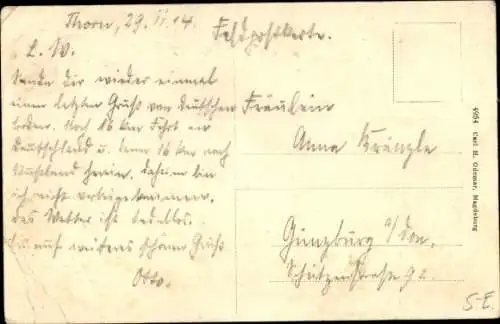 Thorn, 29.11.14.
Feldpostkarte.
L. W.
Sende Dir wieder einmal
einen letzten Gruß von deutschem
Boden. Noch 16 km Fahrt in
Deutschland u. dann 16 km nach
Rußland herein. bin
ich nicht
Das Wetter ist tadellos.
Bis auf weiteres schönen Gruß
Otto.
Fräulein
Anna Kränzle
Günzburg a/Don.
Schützenstraße 92.
4954 Carl H. Odemar, Magdeburg
S-E.